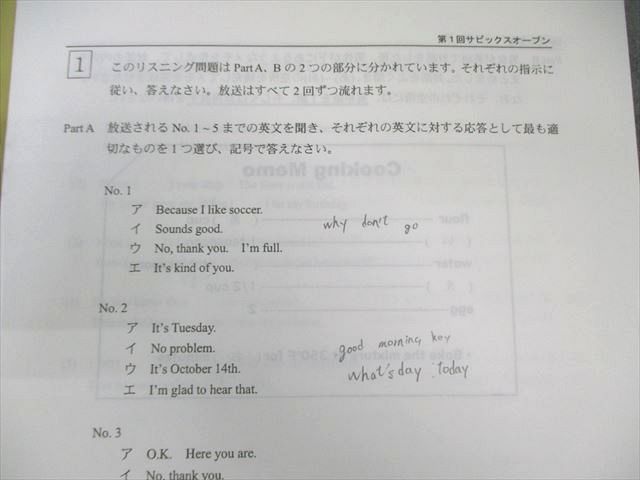 第1回サピックスオープン
1 このリスニング問題は Part A、B の2つの部分に分かれています。それぞれの指示に
従い、答えなさい。放送はすべて2回ずつ流れます。
Part A 放送される No. 1~5 までの英文を聞き、それぞれの英文に対する応答として最も適
切なものを1つ選び、記号で答えなさい。
No. 1
ア Because I like soccer.
イ Sounds good. why don't go
ウ No, thank you. I'm full.
エ It's kind of you.
No. 2
ア It's Tuesday.
イ No problem. good morning key
ウ It's October 14th. what's day today
エ I'm glad to hear that.
No. 3
ア O.K. Here you are.
イ No, thank you.